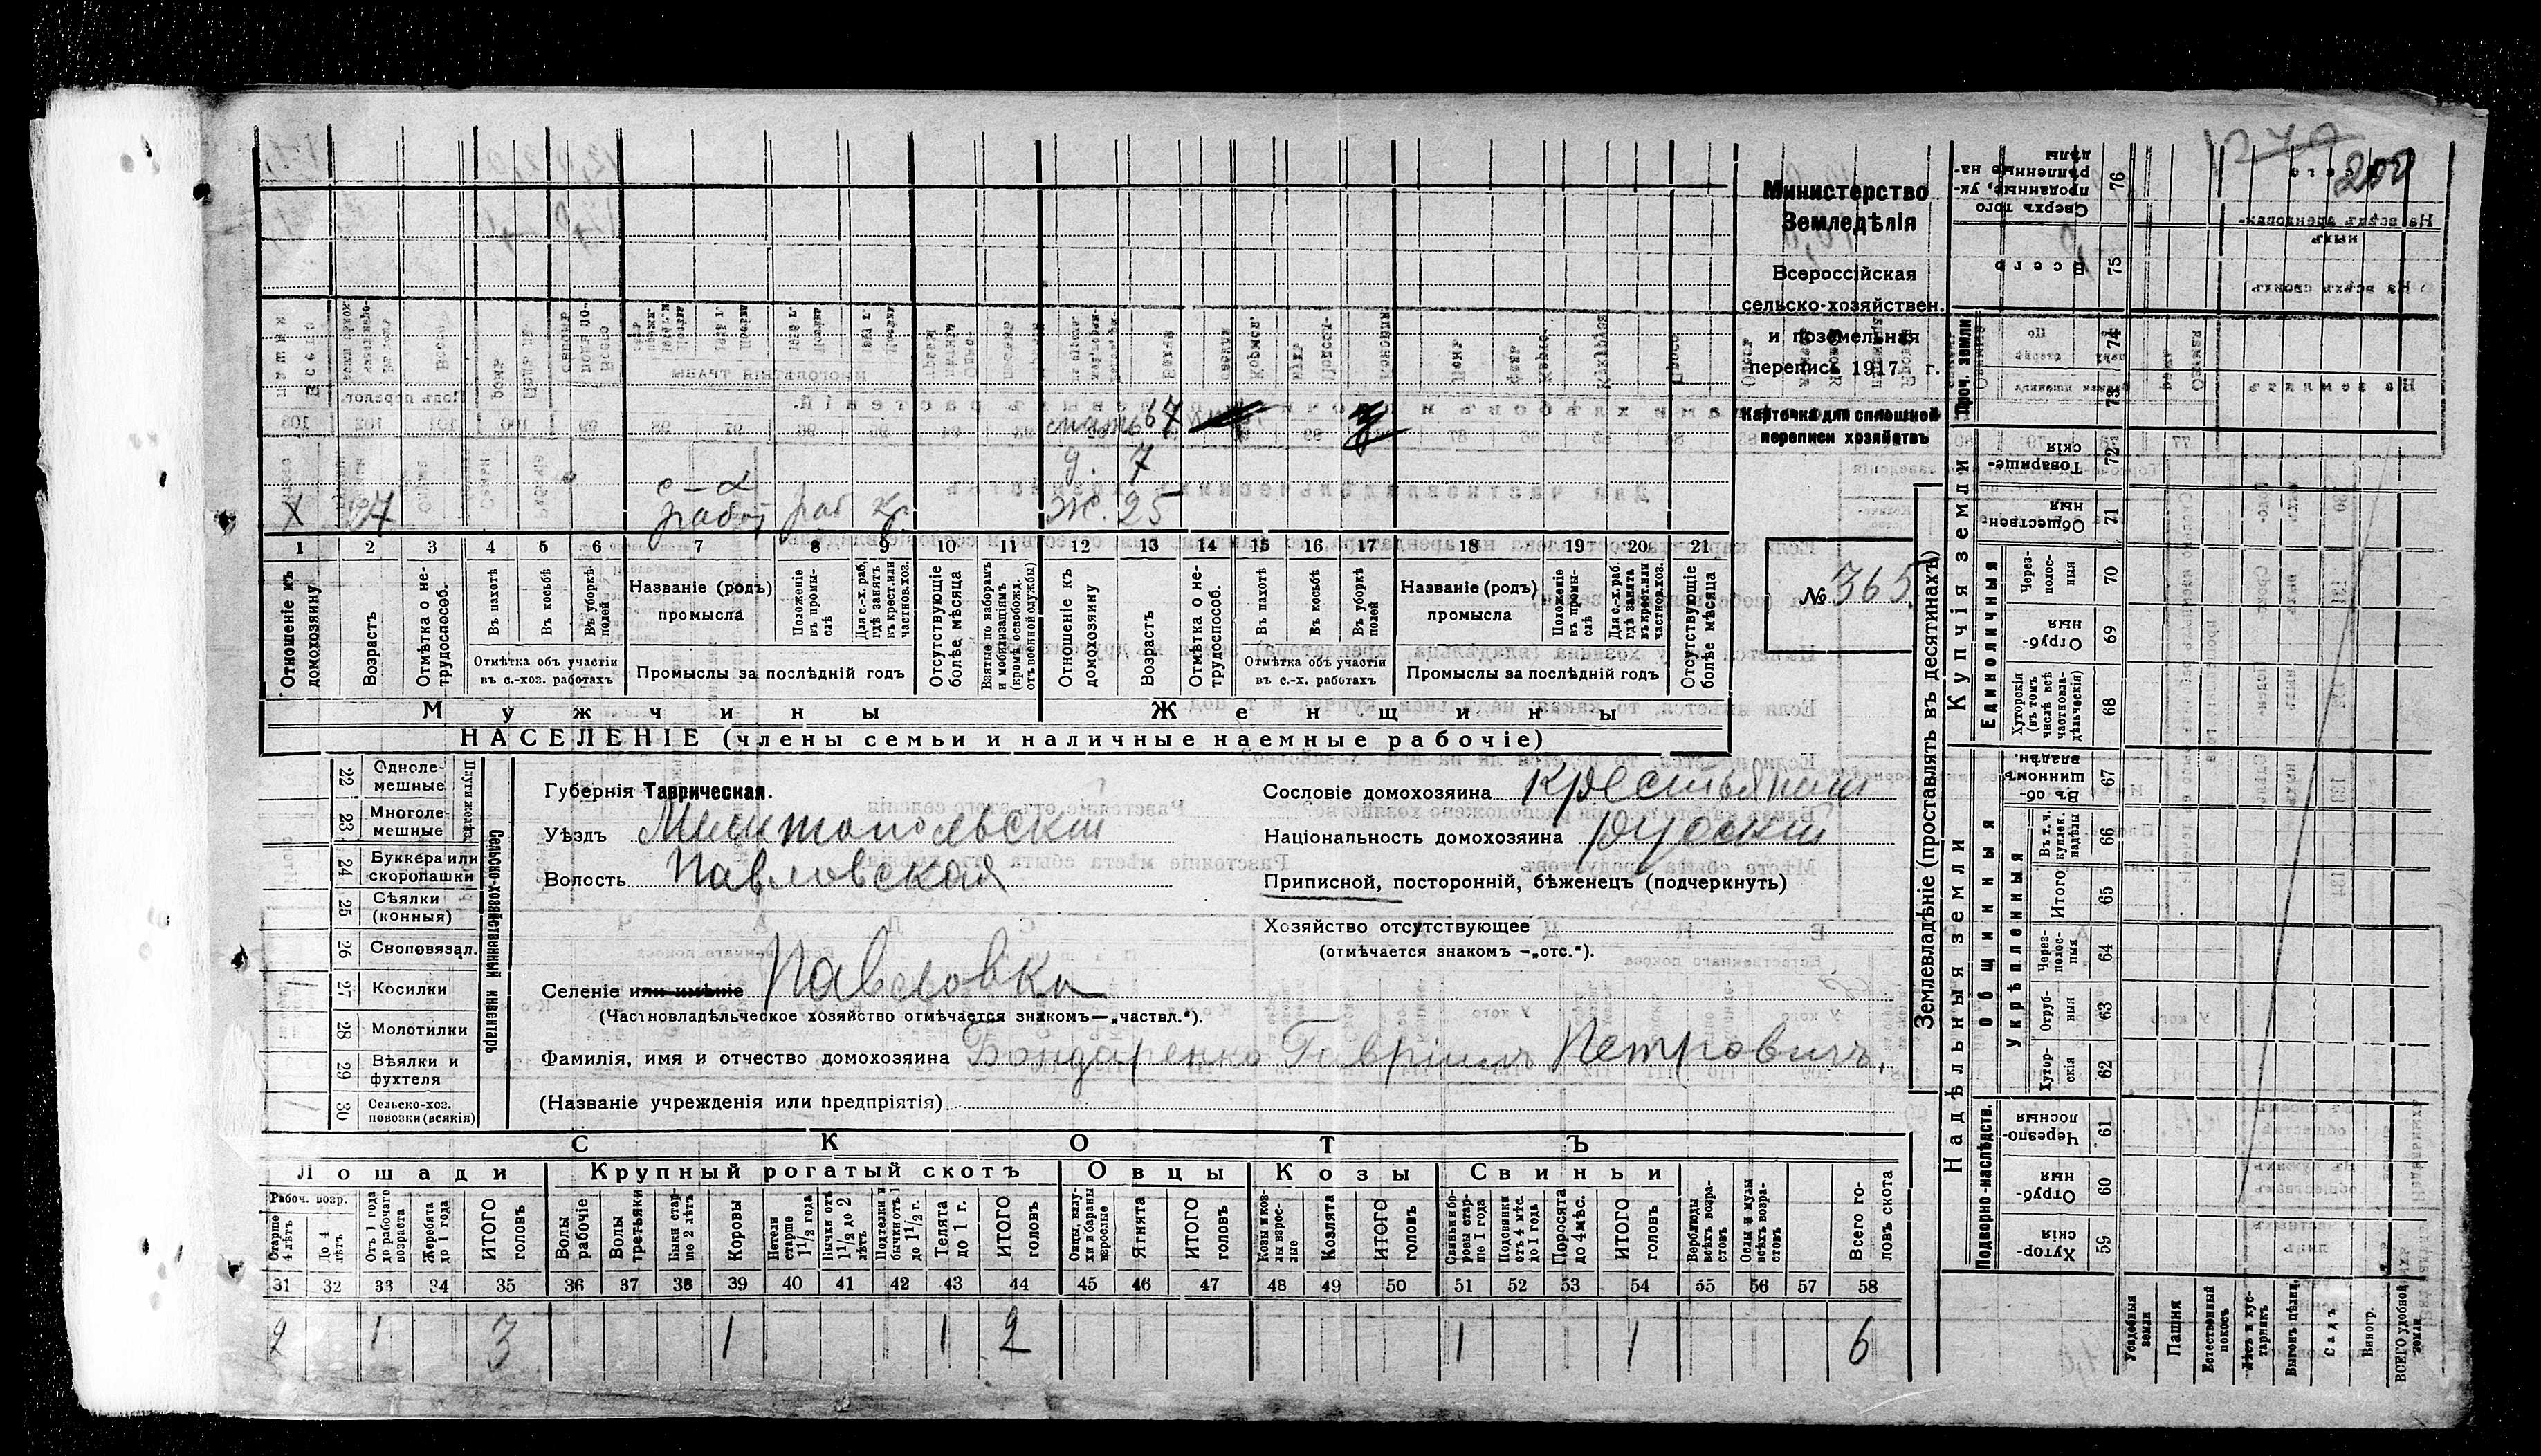 200
Министерство
Земледѣлія
Всероссійская
сельско-хозяйствен.
и поземельная
перепись 1917 г.
Карточка для сплошной
переписи хозяйствъ
№ 365
мать 67
д. 7
х 27 рабоч раб кр. ж. 25
1 2 3 4 5 6 7 8 9 10 11 12 13 14 15 16 17 18 19 20 21
Отношеніе къ домохозяину.
Возрастъ
Отмѣтка о не-трудоспособ.
Въ пахотѣ
Въ косьбѣ
Въ уборкѣ полей
Отмѣтка объ участіи въ с.-хоз. работахъ
Названіе (родъ) промысла
Положеніе въ промы-слѣ
Для с.-х. раб. гдѣ занятъ въ крест. или частнов. хоз.
Промыслы за послѣдній годъ
Отсутствующіе болѣе мѣсяца
Взятые по наборамъ и мобилизаціямъ (кромѣ освобожд. отъ военной службы)
Отношеніе къ домохозяину
Возрастъ
Отмѣтка о не-трудоспособ.
Въ пахотѣ
Въ косьбѣ
Въ уборкѣ полей
Отмѣтка объ участіи въ с.-х. работахъ
Названіе (родъ) промысла
Положеніе въ промы-слѣ
Для с.-х. раб. гдѣ занята въ крест. или частнов. хоз.
Промыслы за послѣдній годъ
Отсутствующіе болѣе мѣсяца
Мужчины Женщины
НАСЕЛЕНІЕ (члены семьи и наличные наемные рабочіе)
Сельско-хозяйственный инвентарь
22 Одноле-мешные
23 Многоле-мешные
24 Буккера или скоропашки
25 Сѣялки (конныя)
26 Сноповязал.
27 Косилки
28 Молотилки
29 Вѣялки и фухтеля
30 Сельско-хоз. повозки (всякія)
Губернія Таврическая.
Уѣздъ Мелитопольскій
Волость Павловская
Селеніе или имѣніе Павловка
(Частновладѣльческое хозяйство отмѣчается знакомъ—„частвл.“).
Фамилія, имя и отчество домохозяина Бондаренко Гавріилъ Петровичъ.
(Названіе учрежденія или предпріятія)
Сословіе домохозяина крестьянин
Національность домохозяина русский
Приписной, посторонній, бѣженецъ (подчеркнуть)
Хозяйство отсутствующее
(отмѣчается знакомъ —„отс.“).
СКОТЪ
Лошади Крупный рогатый скотъ Овцы Козы Свиньи
Рабоч. возр.
Старше 4 лѣтъ
До 4 лѣтъ
Отъ 1 года до рабочаго возраста
Жеребята до 1 года
ИТОГО головъ
Волы рабочіе
Волы третьяки
Быки стар-ше 2 лѣтъ
Коровы
Нетели старше 1 1/2 года
Бычки отъ 1 1/2 до 2 лѣтъ
Подтелки и бычки отъ 1 до 1 1/2 г.
Телята до 1 г.
ИТОГО головъ
Овцы, валу-хи и бараны взрослые
Ягнята
ИТОГО головъ
Козы и коз-лы взрос-лые
Козлята
ИТОГО головъ
Свиньи и бо-ровы стар-ше 1 года
Подсвинки отъ 4 мѣс. до 1 года
Поросята до 4 мѣс.
ИТОГО головъ
Верблюды всѣхъ возра-стовъ
Ослы и мулы всѣхъ возра-стовъ
Всего го-ловъ скота
31 32 33 34 35 36 37 38 39 40 41 42 43 44 45 46 47 48 49 50 51 52 53 54 55 56 57 58
2 1 3 1 1 2 1 1 6
Землевладѣніе (проставлять въ десятинахъ)
Надѣльныя земли Купчія земли Проч. земли
Подворно-наслѣдств.
Общинныя
Укрѣпленныя
Единоличныя
Хутор-скія 59
Отруб-ныя 60
Черезпо-лосныя 61
Хутор-скія 62
Отруб-ныя 63
Через-полос-ныя 64
Итого 65
Въ т. ч. куплен. надѣлы 66
Въ об-щинномъ владѣн. 67
Хуторскія (въ томъ числѣ всѣ частновла-дѣльческія) 68
Отруб-ныя 69
Через-полос-ныя 70
Обществен-ныя 71
Товарище-скія 72
73
74
Всего 75
Сверхъ того проданные, ук-рѣпленные на-дѣлы 76
Усадебныя земли
Пашня
Естественный покосъ
Лѣсъ и кус-тарникъ
Выгонъ цѣлин.
Садъ
Виногр.
ВСЕГО удобной земли